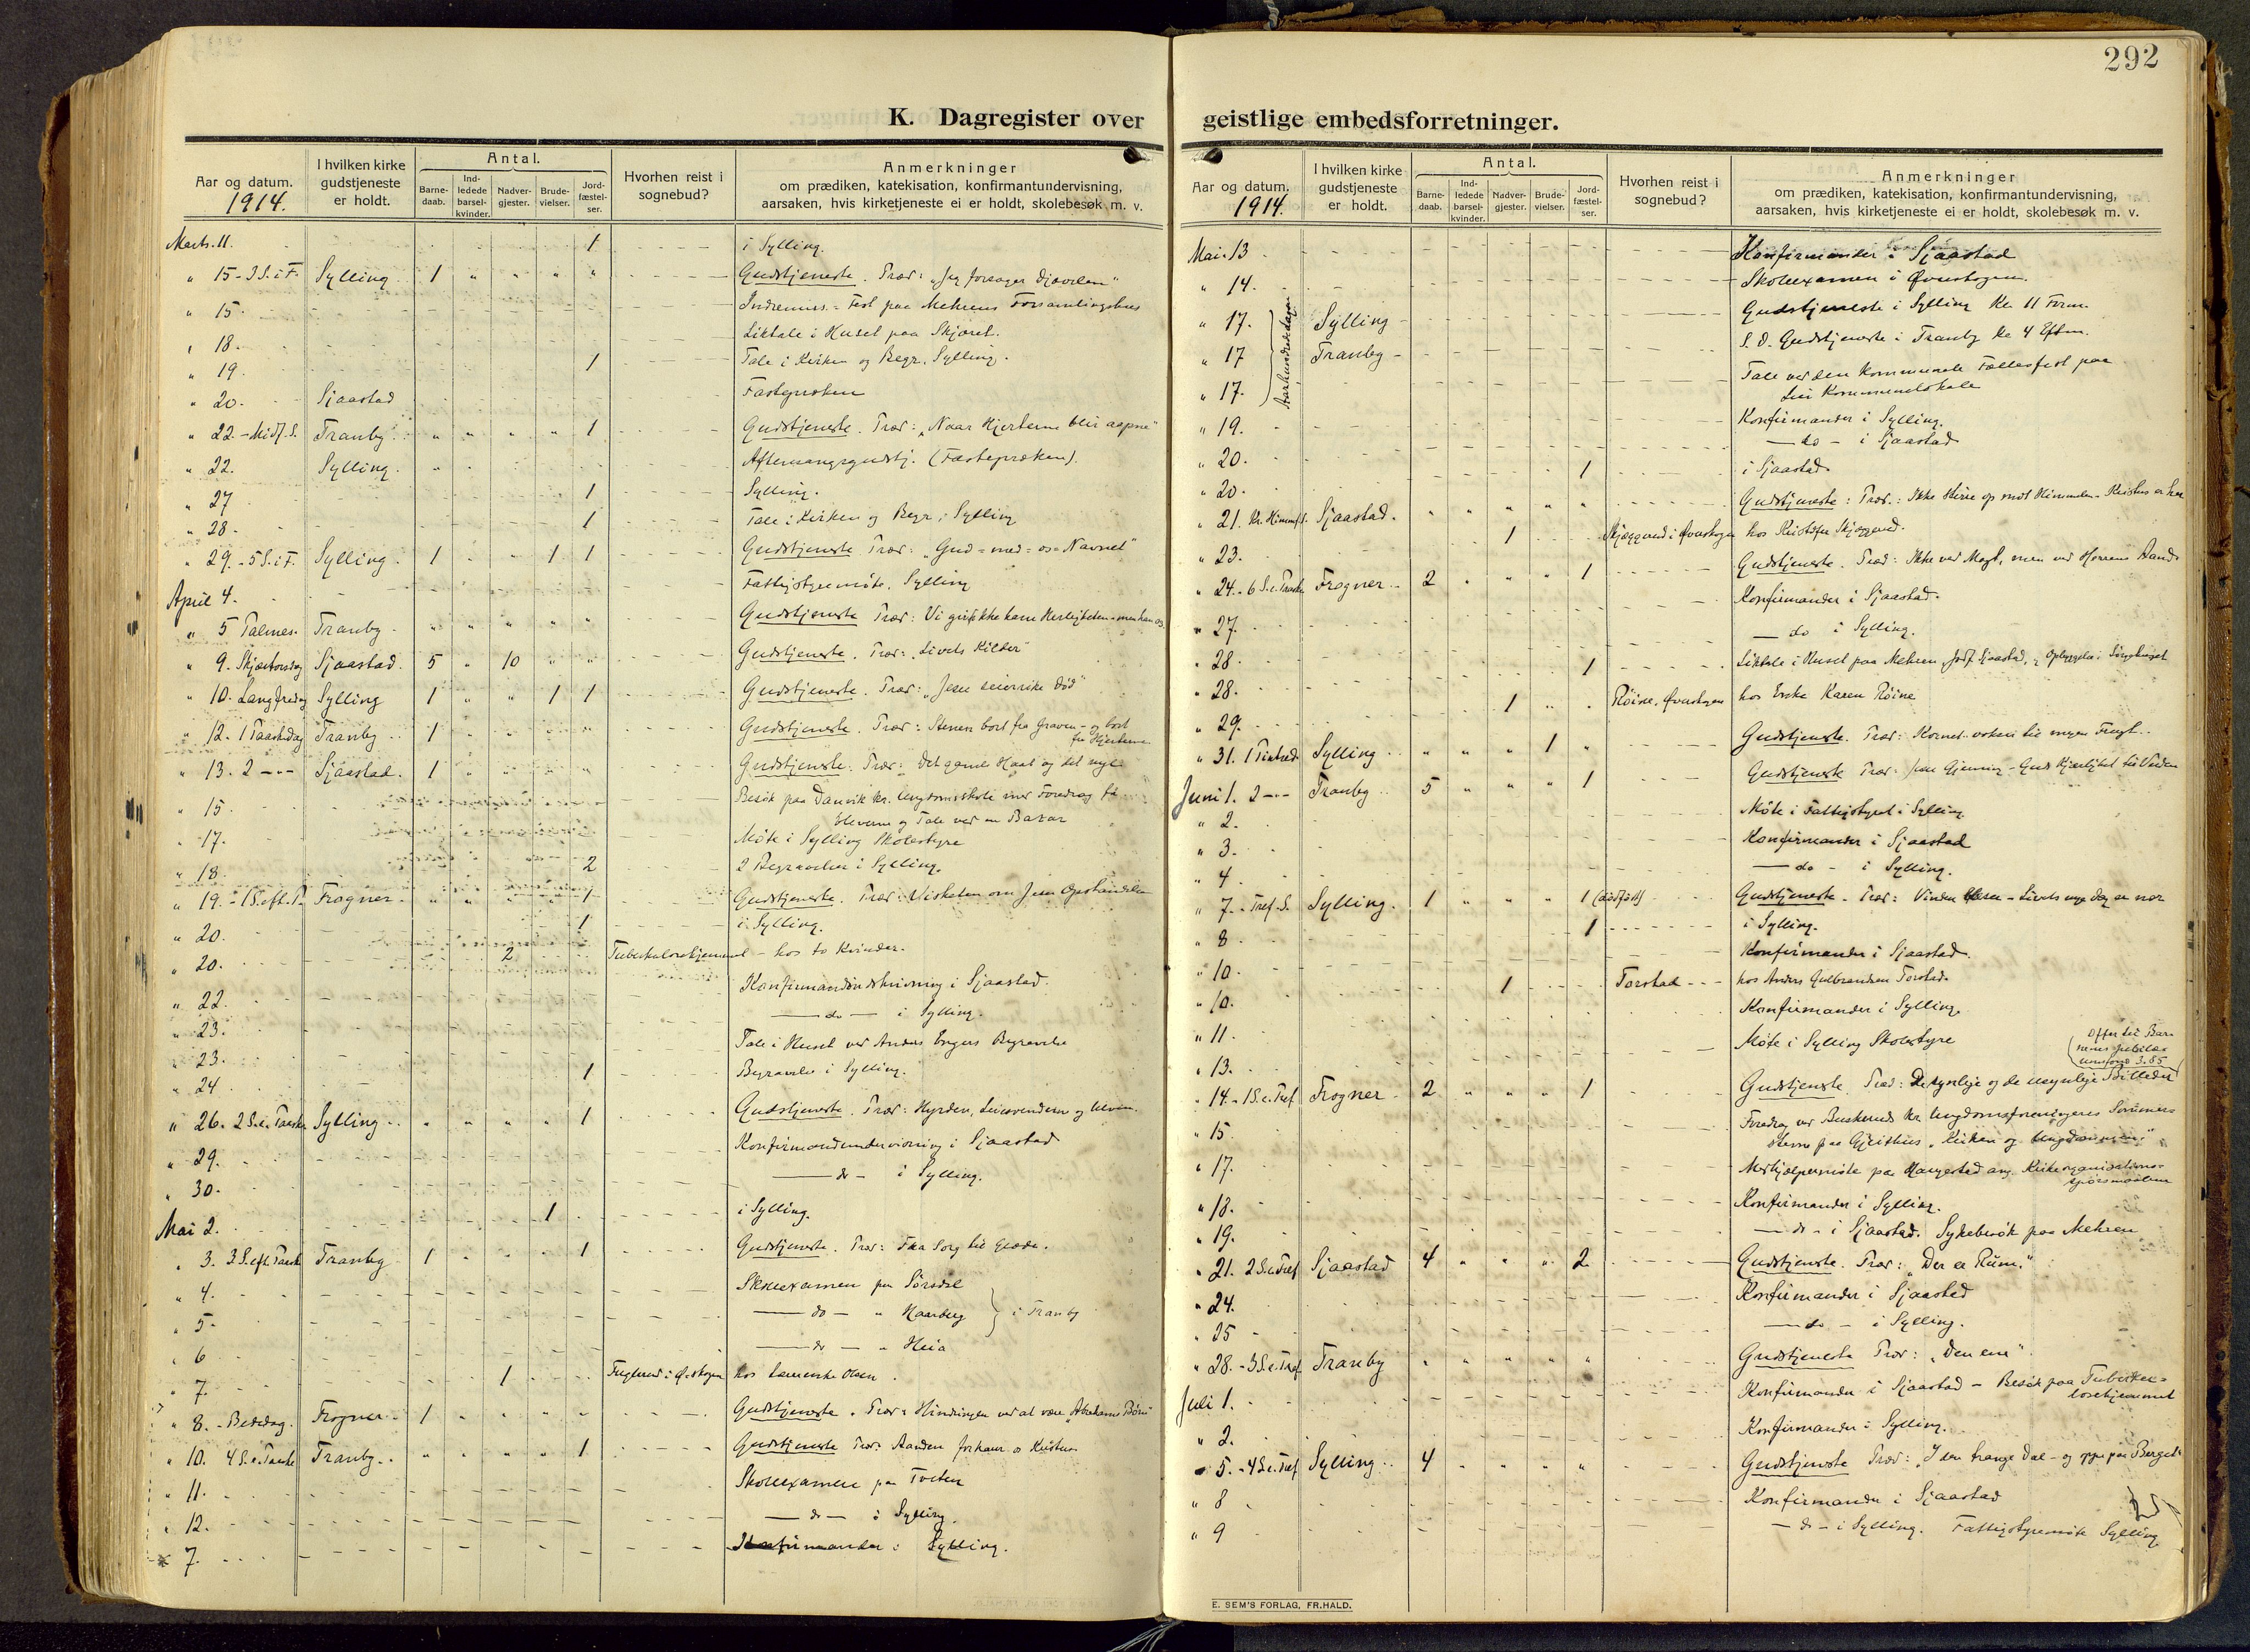 292
K. Dagregister over geistlige embedsforretninger.
Aar og datum.
1914.
I hvilken kirke gudstjeneste er holdt.
Antal.
Barne-daab.
Ind-ledede barsel-kvinder.
Nadver-gjester.
Brude-vielser.
Jord-fæstel-ser.
Hvorhen reist i sognebud?
Anmerkninger
om prædiken, katekisation, konfirmantundervisning,
aarsaken, hvis kirketjeneste ei er holdt, skolebesøk m. v.
Marts. 11. 1 i Sylling.
" 15 - 3 S. i F. Sylling 1 " " " " Gudstjeneste. Præd: "Jeg forsager Djævelen"
" 15. Indremiss. Fest paa Mehrens Forsamlingshus
" 18. Liktale i Huset paa Skjæret.
" 19. 1 Tale i Kirken og Begr. Sylling.
" 20. Sjaastad Fastepræken
" 22. - Midf. S. Tranby " " " " 1 Gudstjeneste. Præd: "Naar Hjerterne blir aapne"
" 22. Sylling. Aftensangsgudstj. (Fastepræken).
" 27 1 Sylling.
" 28. 1 Tale i Kirken og Begr. i Sylling
" 29. - 5 S. i F. Sylling. 1 " " 1 1 Gudstjeneste Præd: "Gud-med-os-Navnet"
April 4. Fattigstyremöte, Sylling
" 5 Palmes. Tranby " " " " " Gudstjeneste Præd: Vi ikke hans Herligheten - men han os
" 9. Skjærtorsdag Sjaastad. 5 " 10 " " Gudstjeneste. Præd: "Livets Kilder"
" 10. Langfredag Sylling 1 " " 1 1 Gudstjeneste. Præd: "Jesu seierrike Död"
" 12. 1 Paaskedag Tranby 1 " " " " Gudstjeneste. Præd: Stenen bort fra Graven - og bort
fra Hjerterne
" 13. 2 -"- Sjaastad. 1 " " " " Gudstjeneste. Præd: Det gamle Haab og det nye
" 15. Besök paa Danvik kr. Ungdomsskole med Foredrag for
Eleverne og Tale ved en Bazar
" 17. Möte i Sylling Skolestyre
" 18. 2 2 Begravelser i Sylling.
" 19. - 1 S. eft. P. Frogner " " 1 Gudstjeneste. Præd: Visheten om Jesu Opstandelse
" 20. 1 i Sylling.
" 20. 2 Tuberkulosehjemmet - hos to Kvinder.
" 22. Konfirmandindskrivning i Sjaastad.
" 23. -do- i Sylling.
" 23. Tale i Huset ved Anders Engers Begravelse
" 24 1 Begravelse i Sylling.
" 26. 2 S. e. Paaske Sylling " " " " 1 Gudstjeneste. Præd: Hyrden, Leiesvenden og Ulven.
" 29. Konfirmandundervisning i Sjaastad
" 30. -do- i Sylling.
Mai 2. 1 i Sylling.
" 3. 3 S. eft. Paaske Tranby 1 " " " 1 Gudstjeneste. Præd: Fra Sorg til Glæde.
" 4. Skoleexamen paa Sörsdal
" 5. -do- " Haarberg } i Tranby
" 6 -do- " Heia
" 7. 1 hos Olsen.
" 8. - Bededag. Frogner 1 " " " " Gudstjeneste. Præd: Hindringen ved at være "Abrahams Börn"
" 10. 4 S. e. Paaske Tranby " " " " 1 Gudstjeneste Præd: Aanden forklarer os Kristus.
" 11. Skoleexamen paa Tveten
" 12. -do- i Sylling.
" 7. Konfirmander i Sylling.
Aar og datum.
1914.
I hvilken kirke gudstjeneste er holdt.
Antal.
Barne-daab.
Ind-ledede barsel-kvinder.
Nadver-gjester.
Brude-vielser.
Jord-fæstel-ser.
Hvorhen reist i sognebud?
Anmerkninger
om prædiken, katekisation, konfirmantundervisning,
aarsaken, hvis kirketjeneste ei er holdt, skolebesøk m. v.
Mai. 13 Konfirmander i Sjaastad
" 14. Skoleexamen i Överskogen.
Aarhundredsdagen
" 17. Sylling Gudstjeneste i Sylling Kl. 11 Form.
" 17 Tranby S. D. Gudstjeneste i Tranby Kl 4 Efterm.
" 17. Tale ved den kommunale Fællesfest paa
Lier Kommunelokale
" 19. Konfirmander i Sylling.
" 20. -do- i Sjaastad
" 20. 1 i Sjaastad.
" 21. Kr. Himmf. d. Sjaastad. " " " " " Gudstjeneste: Præd.: Ikke stirre op mot Himmelen - Kristus er her
" 23. 1 Skjæggerud i Överskogen hos Kristoffer Skjæggerud.
" 24. - 6 S. e. Paaske Frogner 2 " " " 1 Gudstjeneste. Præd: Ikke ved Magt, men ved Herrens Aand
" 27. Konfirmander i Sjaastad.
" 28. -do i Sylling.
" 28. 1 Liktale i Huset paa Mehren, Jordf. Sjaastad, Opbyggelse i Sörgehuset
" 29. 1 Röine, Överskogen hos Enke Karen Röine
" 31. 1 Pintsed. Sylling " " " 1 " Gudstjeneste. Præd: Kornet vokser til megen Frugt.
Juni 1. 2 -"- Tranby 5 " " " 1 Gudstjeneste Præd: Guds Kjærlighet til Verden
" 2. Möte i Fattigstyret i Sylling
" 3. Konfirmander i Sjaastad
" 4. -do- i Sylling.
" 7. - Tref. S. Sylling. 1 " " " 1 (dödfödt) Gudstjeneste. Præd: Vinden blæser - Livets nye Dag er nær
" 8 1 i Sylling.
" 10. Konfirmander i Sjaastad.
" 10. 1 Torstad hos Anders Gulbrandsen Torstad.
" 11. Konfirmander i Sylling.
" 13. Möte i Sylling Skolestyre
" 14. - 1 S. e. Tref Frogner 2 " " " 1 Gudstjeneste. Præd: De synlige og de usynlige Billeder
(Offer til Barnenes 3.85)
" 15 Foredrag ved Buskeruds kr. Ungdomsforeningers Sommer=
stevne paa "Kirken og Ungdommen."
" 17. paa Haugestad ang. Kirkeorganisations=
spörsmaalene
" 18. Konfirmander i Sylling.
" 19. -do- i Sjaastad. Sykebesök paa Mehren
" 21. 2 S. e. Tref Sjaastad 4 " " " 2. Gudstjeneste. Præd: "Der er Rum."
" 24. Konfirmander i Sjaastad
" 25 -do- i Sylling.
" 28. - 3 S. e. Tref. Tranby " " " " " Gudstjeneste Præd: "Den ene"
Juli 1. Konfirmander i Sjaastad - Besök paa Tuberku=
losehjemmet
" 2. Konfirmander i Sylling.
" 5. - 4 S. e. Tref Sylling 4 " " " " Gudstjeneste Præd: "I den trange Dal - og oppe paa Berget"
" 8 Konfirmander i Sjaastad
" 9 -do- i Sylling. Fattigstyremöte Sylling
E. SEM'S FORLAG, FR.HALD.